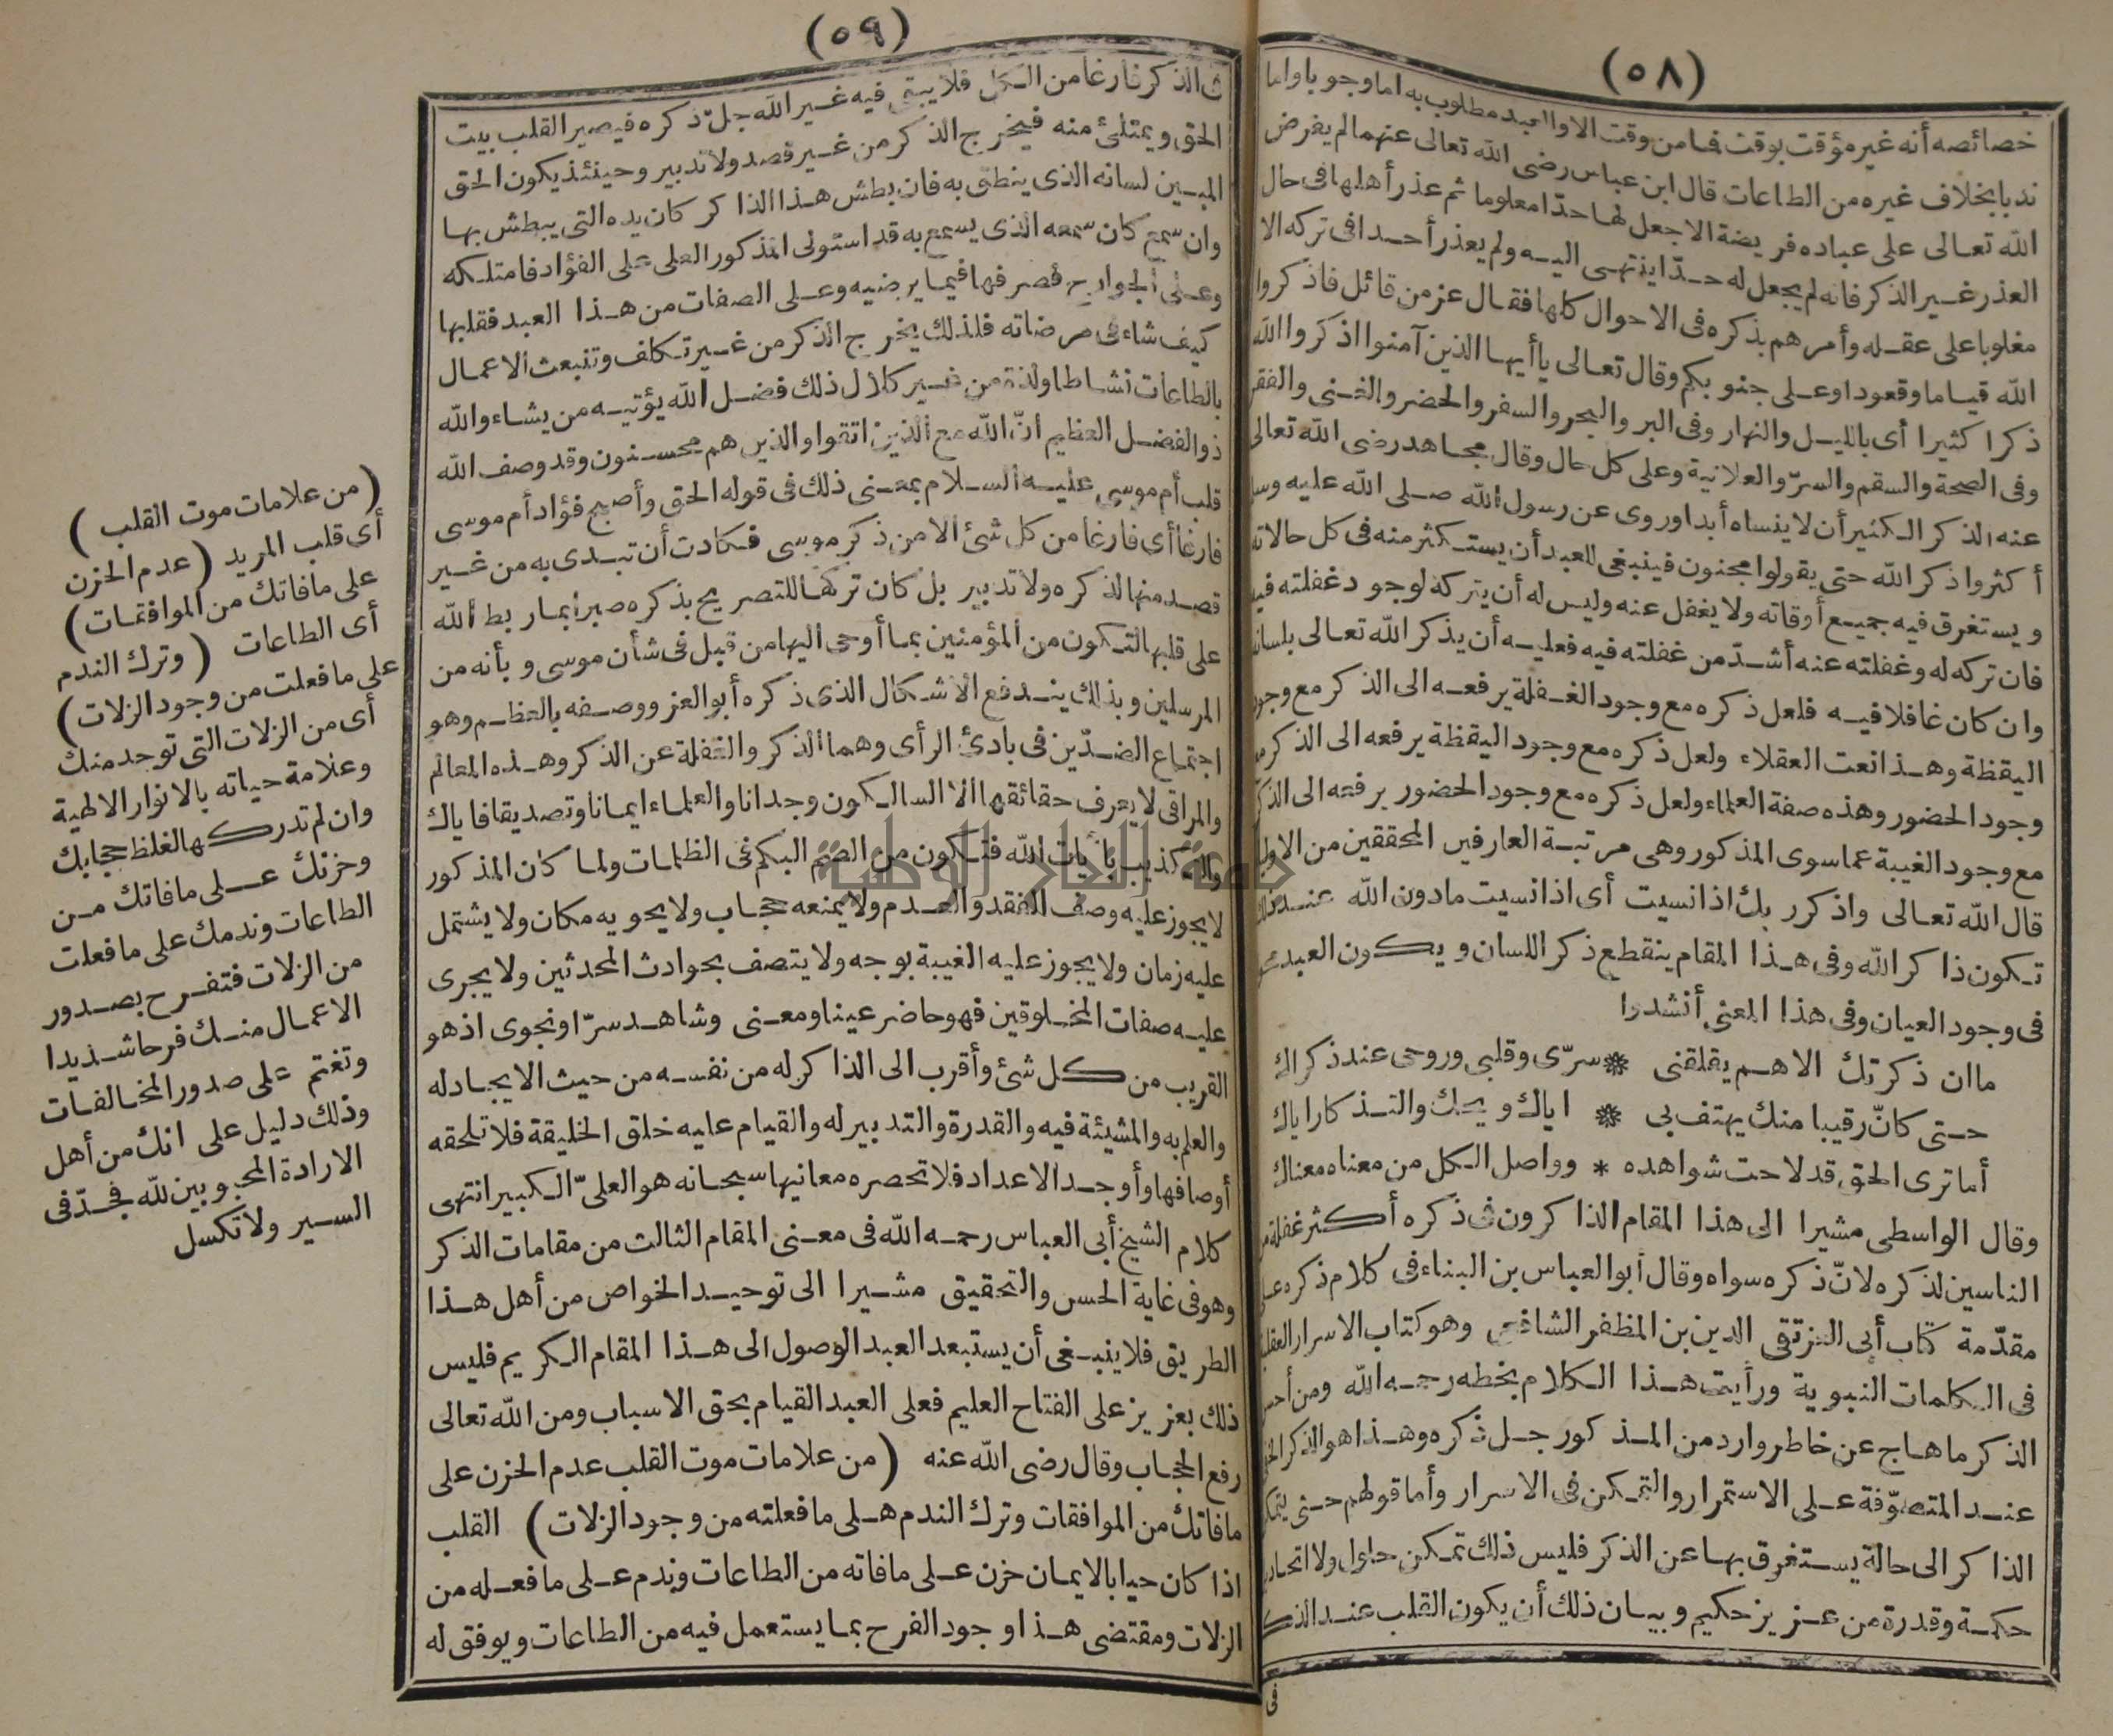 (٥٨)
خصائصه أنه غير مؤقت بوقت فما من وقت الاوالعبد مطلوب به اما وجوبا واما
ندبا بخلاف غيره من الطاعات قال ابن عباس رضى الله تعالى عنهما لم يفرض
الله تعالى على عباده فريضة الاجعل لها حدّا معلوما ثم عذر أهلها فى حال
العذر غير الذكر فانه لم يجعل له حدّا ينتهى اليه ولم يعذر أحدا فى تركه الا
مغلوبا على عقله وأمرهم بذكره فى الاحوال كلها فقال عز من قائل فاذكروا
الله قياما وقعودا وعلى جنوبكم وقال تعالى ياأيها الذين آمنوا اذكروا الله
ذكرا كثيرا أى بالليل والنهار وفى البر والبحر والسفر والحضر والغنى والفقر
وفى الصحة والسقم والسرّ والعلانية وعلى كل حال وقال مجاهد رضى الله تعالى
عنه الذكر الكثير أن لا ينساه أبدا وروى عن رسول الله صلى الله عليه وسلم
أكثروا ذكر الله حتى يقولوا مجنون فينبغى للعبد أن يستكثر منه فى كل حالاته
ويستغرق فيه جميع أوقاته ولا يغفل عنه وليس له أن يتركه لوجود غفلته فيه
فان تركه له وغفلته عنه أشدّ من غفلته فيه فعليه أن يذكر الله تعالى بلسانه
وان كان غافلا فيه فلعل ذكره مع وجود الغفلة يرفعه الى الذكر مع وجود
اليقظة وهذا نعت العقلاء ولعل ذكره مع وجود اليقظة يرفعه الى الذكر مع
وجود الحضور وهذه صفة العلماء ولعل ذكره مع وجود الحضور يرفعه الى الذكر
مع وجود الغيبة عما سوى المذكور وهى مرتبة العارفين المحققين من الاولياء
قال الله تعالى واذكر ربك اذا نسيت أى اذا نسيت مادون الله عند ذلك
تكون ذاكر الله وفى هذا المقام ينقطع ذكر اللسان ويكون العبد محوا
فى وجود العيان وفى هذا المعنى أنشدوا
ما ان ذكرتك الا هم يقلقنى * سرّى وقلبى وروحى عند ذكراك
حتى كانّ رقيبا منك يهتف بى * اياك ويحك والتذكار اياك
أما ترى الحق قد لاحت شواهده * وواصل الكل من معناه معناك
وقال الواسطى مشيرا الى هذا المقام الذاكرون فى ذكره أكثر غفلة من
الناسين لذكره لانّ ذكره سواه وقال أبو العباس بن البناء فى كلام ذكره على
مقدّمة كتاب أبى العز تقى الدين بن المظفر الشافعى وهو كتاب الاسرار العقلية
فى الكلمات النبوية ورأيت هذا الكلام بخطه رحمه الله ومن أحسن
الذكر ما هاج عن خاطر وارد من المذكور جل ذكره وهذا هو الذكر الخفى
عند المتصوّفة على الاستمرار والتمكن فى الاسرار وأما قولهم حتى يتمكن
الذاكر الى حالة يستغرق بها عن الذكر فليس ذلك تمكن حلول ولا اتحاد بل
حكمة وقدرة من عزيز حكيم وبيان ذلك أن يكون القلب عند الذكر
فى
(٥٩)
فى الذكر فارغا من الكل فلا يبقى فيه غير الله جلّ ذكره فيصير القلب بيت
الحق ويمتلئ منه فيخرج الذكر من غير قصد ولا تدبير وحينئذ يكون الحق
المبين لسانه الذى ينطق به فان بطش هذا الذاكر كان يده التى يبطش بها
وان سمع كان سمعه الذى يسمع به قد استولى المذكور العلى على الفؤاد فامتلكه
وعلى الجوارح فصرفها فيما يرضيه وعلى الصفات من هذا العبد فقلبها
كيف شاء فى مرضاته فلذلك يخرج الذكر من غير تكلف وتنبعث الاعمال
بالطاعات نشاطا ولذة من غير كلال ذلك فضل الله يؤتيه من يشاء والله
ذو الفضل العظيم انّ الله مع الذين اتقوا والذين هم محسنون وقد وصف الله
قلب أم موسى عليه السلام بمعنى ذلك فى قوله الحق وأصبح فؤاد أم موسى
فارغا أى فارغا من كل شئ الا من ذكر موسى فكادت أن تبدى به من غير
قصد منها لذكره ولا تدبير بل كان تركها للتصريح بذكره صبرا بما ربط الله
على قلبها لتكون من المؤمنين بما أوحى اليها من قبل فى شأن موسى وبأنه من
المرسلين وبذلك يندفع الاشكال الذى ذكره أبو العز ووصفه بالعظم وهو
اجتماع الضدّين فى بادئ الرأى وهما الذكر والغفلة عن الذكر وهذه المعالم
والمراقى لا يعرف حقائقها الا السالكون وجدانا والعلماء ايمانا وتصديقا فاياك
والتكذيب بآيات الله فتكون من الصم البكم فى الظلمات ولما كان المذكور
لا يجوز عليه وصف الفقد والعدم ولا يمنعه حجاب ولا يحويه مكان ولا يشتمل
عليه زمان ولا يجوز عليه الغيبة بوجه ولا يتصف بحوادث المحدثين ولا يجرى
عليه صفات المخلوقين فهو حاضر عينا ومعنى وشاهد سرّا ونجوى اذ هو
القريب من كل شئ وأقرب الى الذاكر له من نفسه من حيث الايجاد له
والعلم به والمشيئة فيه والقدرة والتدبير له والقيام عليه خلق الخليقة فلا تلحقه
أوصافها وأوجد الاعداد فلا تحصره معانيها سبحانه هو العلىّ الكبير انتهى
كلام الشيخ أبى العباس رحمه الله فى معنى المقام الثالث من مقامات الذكر
وهو فى غاية الحسن والتحقيق مشيرا الى توحيد الخواص من أهل هذا
الطريق فلا ينبغى أن يستبعد العبد الوصول الى هذا المقام الكريم فليس
ذلك بعزيز على الفتاح العليم فعلى العبد القيام بحق الاسباب ومن الله تعالى
رفع الحجاب وقال رضى الله عنه (من علامات موت القلب عدم الحزن على
مافاتك من الموافقات وترك الندم على مافعلته من وجود الزلات) القلب
اذا كان حيا بالايمان حزن على مافاته من الطاعات وندم على مافعله من
الزلات ومقتضى هذا وجود الفرح بما يستعمل فيه من الطاعات ويوفق له
(من علامات موت القلب)
أى قلب المريد (عدم الحزن
على مافاتك من الموافقات)
أى الطاعات (وترك الندم
على مافعلت من وجود الزلات)
أى من الزلات التى توجد منك
وعلامة حياته بالانوار الالهية
وان لم تدركها لغلظ حجابك
وحزنك على مافاتك من
الطاعات وندمك على مافعلت
من الزلات فتفرح بصدور
الاعمال منك فرحا شديدا
وتغتم على صدور المخالفات
وذلك دليل على انك من أهل
الارادة المحبوبين لله فجدّ فى
السير ولا تكسل
جامعة النجاح الوطنية